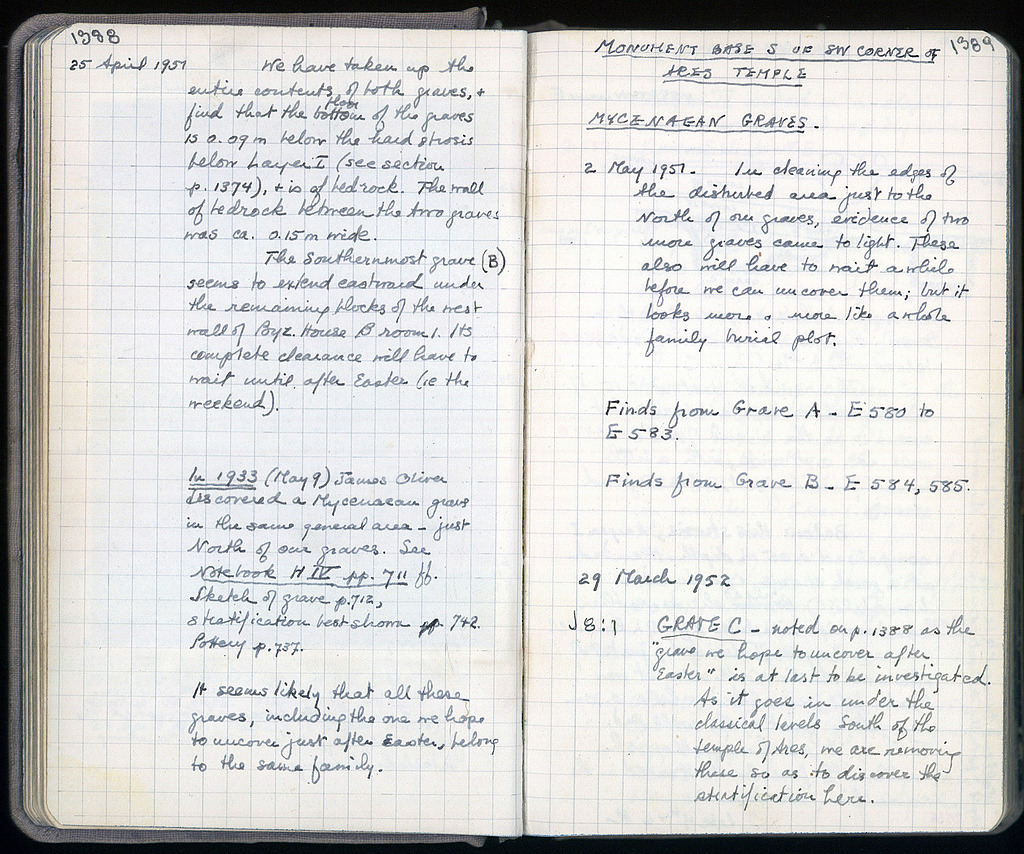 1388
25 April 1951 We have taken up the
entire contents of both graves, +
floor
find that the bottom of the graves
is 0.09 m below the hard strosis
below Layer I (see section
p. 1374), + is of bedrock. The wall
of bedrock between the two graves
was ca. 0.15 m wide.
The Southernmost grave (B)
seems to extend eastward under
the remaining blocks of the west
wall of Byz. House B room 1. Its
complete clearance will have to
wait until after Easter (ie the
weekend).
In 1933 (May 9) James Oliver
discovered a Mycenaean grave
in the same general area – just
North of our graves. See
Notebook H IV pp. 711 ff.
Sketch of grave p. 712,
stratification best shown p. 742.
Pottery p. 737.
It seems likely that all these
graves, including the one we hope
to uncover just after Easter, belong
to the same family.
1389
MONUMENT BASE S OF SW CORNER OF
ARES TEMPLE
MYCENAEAN GRAVES.
2 May 1951. In cleaning the edges of
the disturbed area just to the
North of our graves, evidence of two
more graves came to light. These
also will have to wait a while
before we can uncover them; but it
looks more + more like a whole
family burial plot.
Finds from Grave A – E 580 to
E 583.
Finds from Grave B – E 584, 585.
29 March 1952
J 8:1 GRAVE C – noted on p. 1388 as the
"grave we hope to uncover after
Easter" is at last to be investigated.
As it goes in under the
classical levels South of the
temple of Ares, we are removing
these so as to discover the
stratification here.